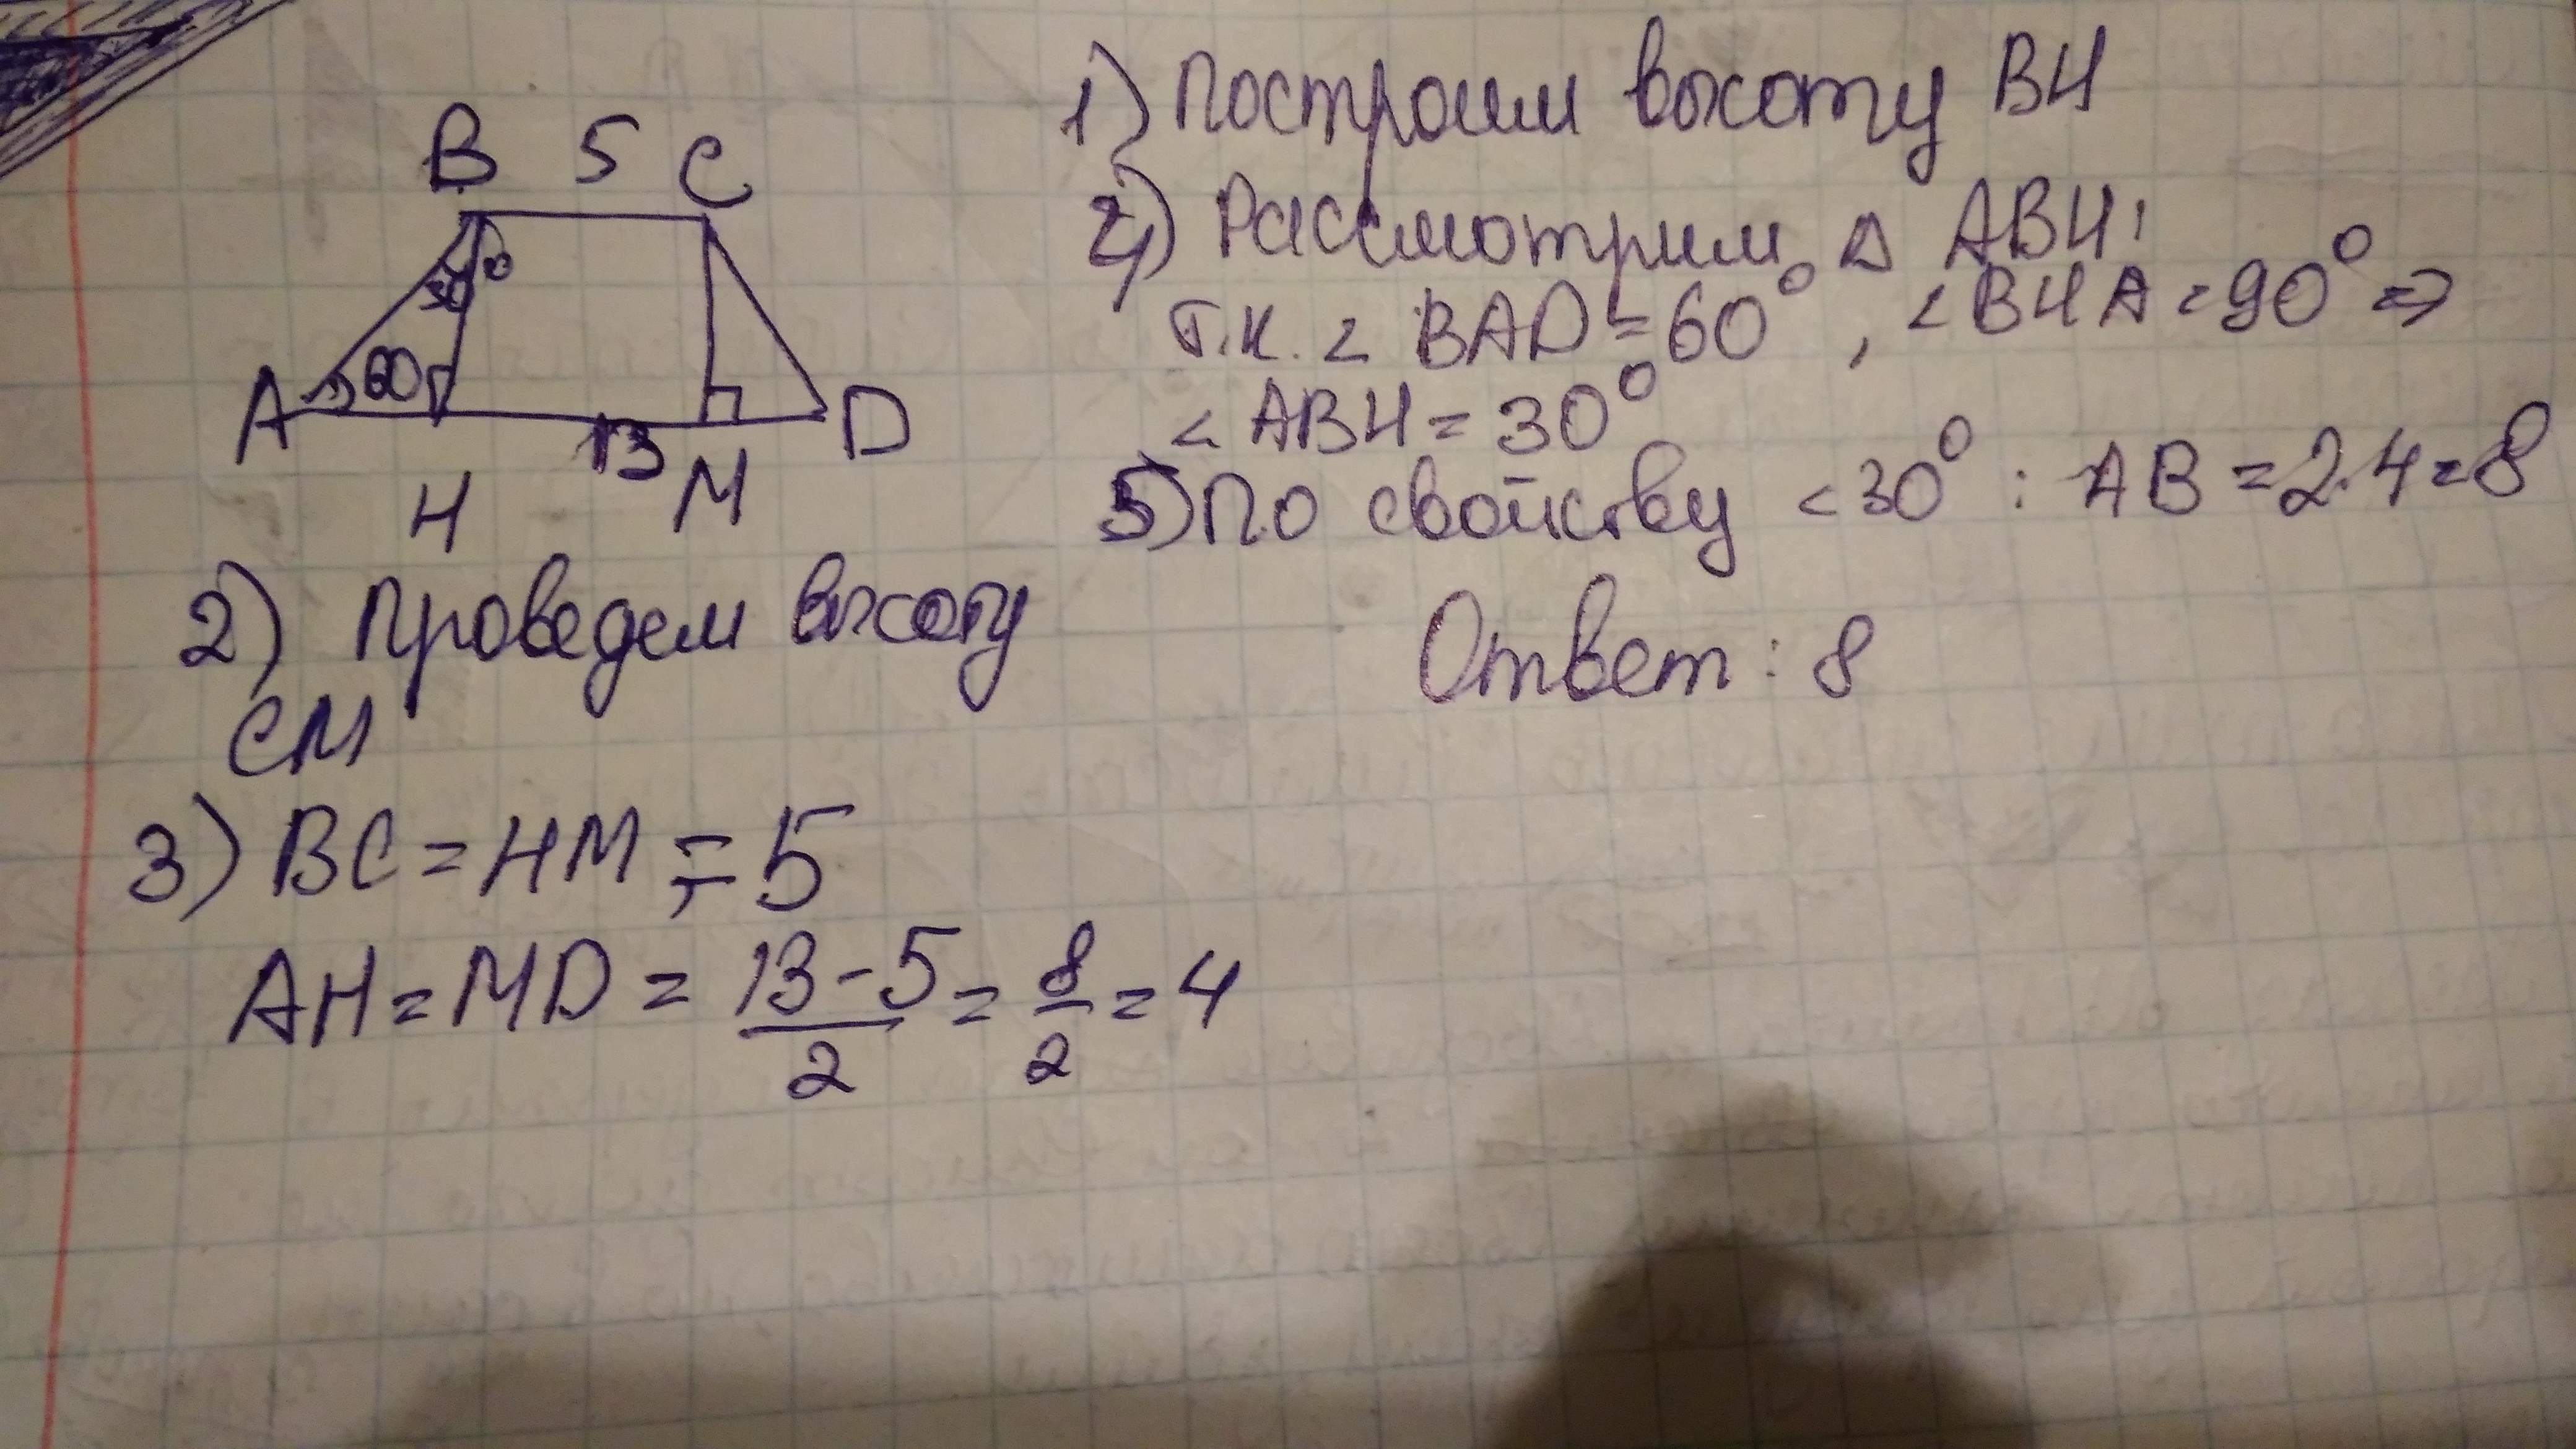 B 5 C
30°
A 60 D
13
H M
1) Построим высоту BH
2) Проведем высоту
CM
3) BC = HM = 5
AH = MD = \frac{13-5}{2} = \frac{8}{2} = 4
4) Рассмотрим Δ ABH:
т.к. < BAD = 60°, < BHA = 90° ⇒
< ABH = 30°
5) По свойству < 30° : AB = 2·4 = 8
Ответ: 8